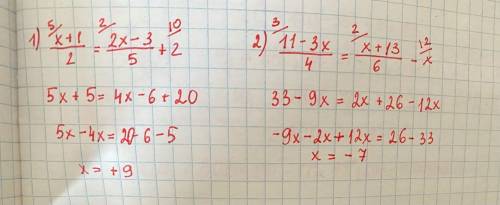 1) 5/ x+1 / 2 = 2/ 2x-3 / 5 + 10/ 2
5x+5=4x-6+20
5x-4x=20-6-5
x=+9
2) 3/ 11-3x / 4 = 2/ x+13 / 6 - 12/ x
33-9x=2x+26-12x
-9x-2x+12x=26-33
x=-7